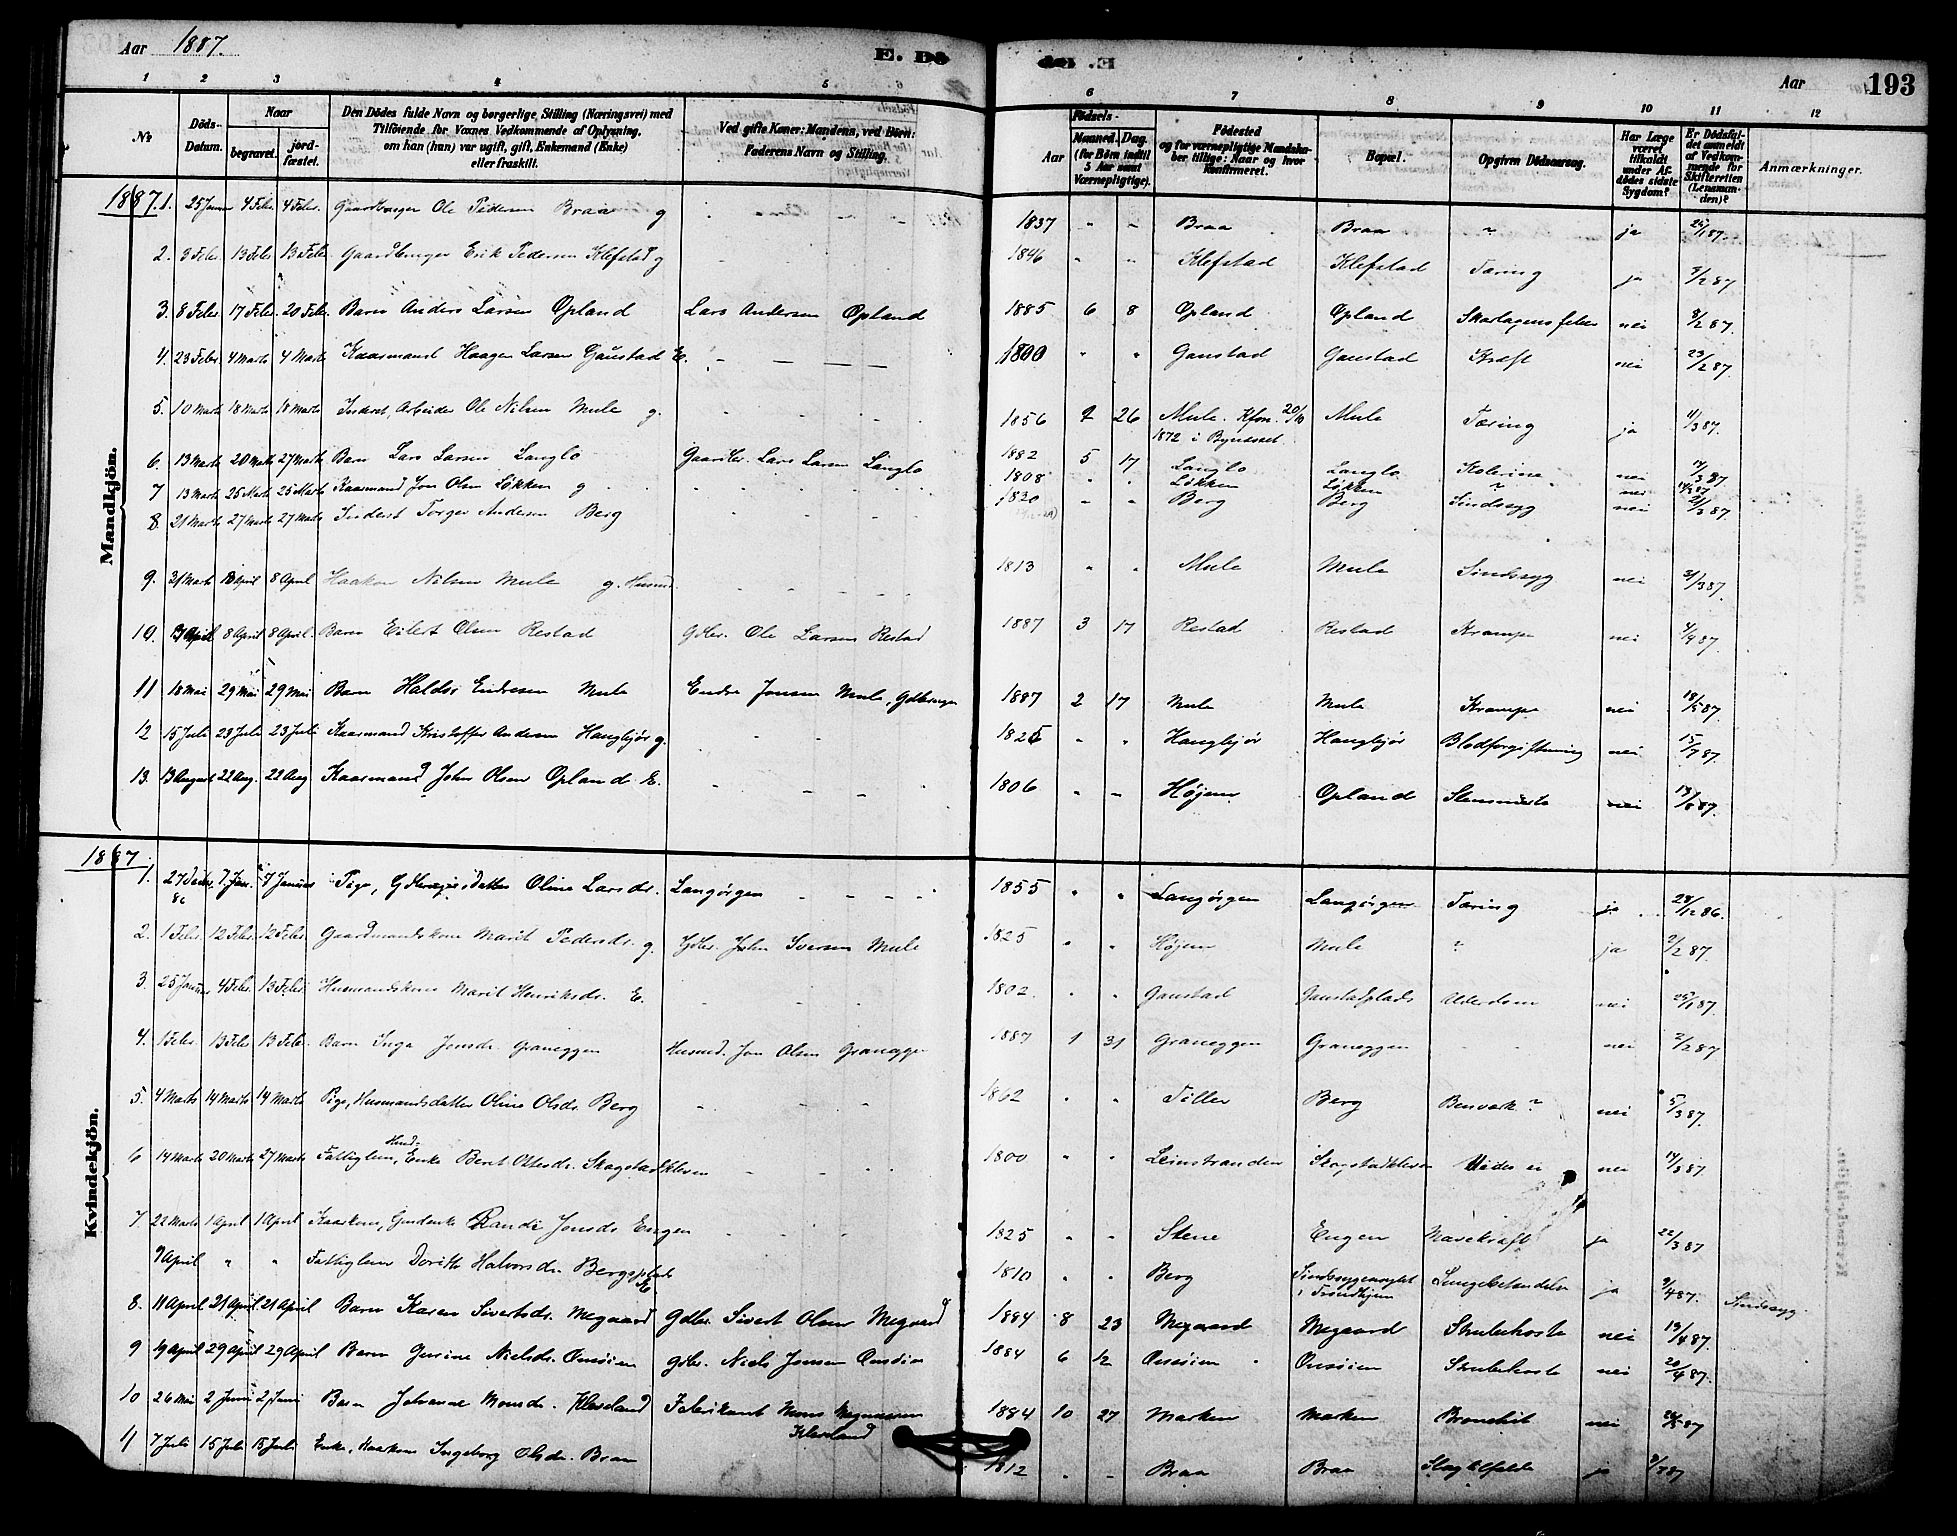 Aar 1887.
E. Dö
E. Dö
Aar
193
1 2 3 4 5
6 7 8 9 10 11 12
No
Döds-Datum.
Naar
begravet.
jordfæstet.
Den Dödes fulde Navn og borgerlige Stilling (Næringsvei) med
Tilföiende for Voxnes Vedkommende af Oplysning,
om han (hun) var ugift, gift, Enkemand (Enke)
eller fraskilt.
Ved gifte Koner: Mandens, ved Börn:
Faderens Navn og Stilling.
Födsels-
Aar
Maaned. Dag.
(for Börn indtil
5 Aar samt
Værnepligtige).
Födested
og for værnepligtige Mandskaber tillige: Naar og hvor
Konfirmeret.
Bopæl.
Opgiven Dödsaarsag.
Har Læge
været
tilkaldt
under Afdödes sidste
Sygdom?
Er Dödsfaldet anmeldt
af Vedkommende for
Skifteretten
(Lensmanden)?
Anmærkninger.
Mandkjön.
1887. 1. 25 Januar 4 Febr. 4 Febr. Gaardbruger Ole Pedersen Braa g 1837 Braa Braa ? ja 25/1 87.
2. 3 Febr 13 Febr 13 Febr Gaardbruger Erik Pedersen Klefstad g 1846 Klefstad Klefstad Tæring ja 3/2 87
3. 8 Febr 17 Febr 20 Febr. Barn Anders Larsen Opland Lars Andersen Opland 1885 6 8 Opland Opland Skarlagensfeber nei 8/2 87.
4. 23 Febr 4 Marts 4 Marts Kaarmand Haagen Larsen Gaustad E. 1800 Gaustad Gaustad Kræft nei 23/2 87.
5. 10 Marts 18 Marts 18 Marts Inderst, Arbeider Ole Nilsen Mule g. 1856 2 26 Mule. Kfon. 20/10 1872 i Bynæsset Mule Tæring ja 11/3 87.
6. 13 Marts 20 Marts 27 Marts Barn Lars Larsen Langlo Gaardbr. Lars Larsen Langlo 1882 5 17 Langlo Langlo Kolerine nei 14/3 87
7 13 Marts 25 Marts 25 Marts Kaarmand Jon Olsen Løkken g 1808 Løkken Løkken ? nei 14/3 87
8 21 Marts 27 Marts 27 Marts Inderst Torger Andersen Berg 1820 Berg Berg Sindssyg nei 21/3 87.
9. 31 Marts 8 April 8 April Haakon Nilsen Mule g. Husmd. 1813 Mule Mule Sindssyg nei 31/3 87.
10. April 8 April 8 April. Barn Eilert Olsen Restad Gdbr. Ole Larsen Restad 1887 3 17 Restad Restad Krampe nei 4/4 87
11 18 Mai 29 Mai 29 Mai Barn Haldor Endresen Mule Endre Jonsen Mule, Gdbruger 1887 2 17 Mule Mule Krampe nei 18/5 87.
12 15 Juli 23 Juli 23 Juli Kaarmand Kristoffer Andersen Haugbjør g. 1825 Haugbjør Haugbjør Blodforgiftning nei 15/7 87.
13. 13 August 22 Aug. 22 Aug Kaarmand John Olsen Opland E. 1806 Højem Opland nei 13/8 87.
Kvindekjön.
1887
1. 27 Decbr. 86 7 Jan. 7 Januar Pige, Oline Larsdr. Langørgen 1855 Langørgen Langørgen Tæring ja 28/12 86.
2. 1 Febr. 12 Febr. 12 Febr. Gaardmandskone Marit Pedersdr. g. Gdbr. John Iversen Mule 1825 Højem Mule ? ja 2/2 87.
3. 25 Januar 4 Febr. 13 Febr Husmandskone Marit Henriksdr. E. 1802. Gaustad Gaustadplads Alderdom nei 25/1 87.
4. 1 Febr. 13 Febr 13 Febr Barn Inga Jonsdr. Graneggen Husmd. Jon Olsen Graneggen 1887 1 31 Graneggen Graneggen nei 2/2 87
5. 4 Marts 14 Marts 14 Marts Pige, Husmandsdatter Oline Olsdr. Berg 1862 Tiller Berg Benværk ? nei 5/3 87.
6 14 Marts 20 Marts 27 Marts Fattiglem, Husd. Enke Beret Ottesdr. Skogstadkleven 1800 Leinstranden Skogstadkleven Vides ei nei 14/3 87.
7. 22 Marts 1 April 1 April Kaarkone, Randi Jonsdr. Engen 1825 Stene Engen Mavekræft ja 22/3 87
7 April Fattiglem Dorithe Halvorsdr. Bergsplads E 1810 Berg Sindssygeasylet i Trondhjem Lungebetændelse ja 9/4 87. Sindssyg.
8. 11 April 21 April 21 April Barn Karen Sivertsdr. Megaard Gdbr. Sivert Olsen Megaard 1884 8 23 Megaard Megaard Strubehoste nei 13/4 87.
9 19 April 29 April 29 April Barn Gurine Nielsdr. Onsøien gdbr. Niels Jonsen Onsøien 1884 6 12 Onsøien Onsøien Strubehoste nei 20/4 87.
10 26 Mai 2 Juni 2 Juni Barn Johanne Monsdr. Kleveland Fabrikant Mons Magnussen Kleveland 1884 10 27 Marken Marken Bronchit nei 26/5 87
11 7 Juli 15 Juli 15 Juli Enke, Kaarkone Ingeborg Olsdr. Braa 1812 Braa Braa Slagtilfælde ja 9/7 87